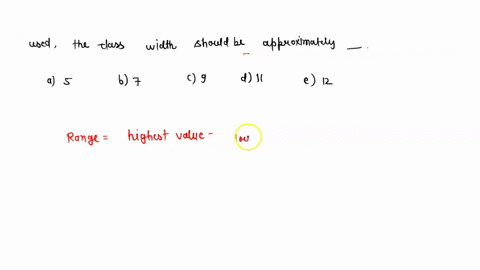 used, the class width should be approximately __.
a) 5 b) 7 c) 9 d) 11 e) 12
Range = highest value - low